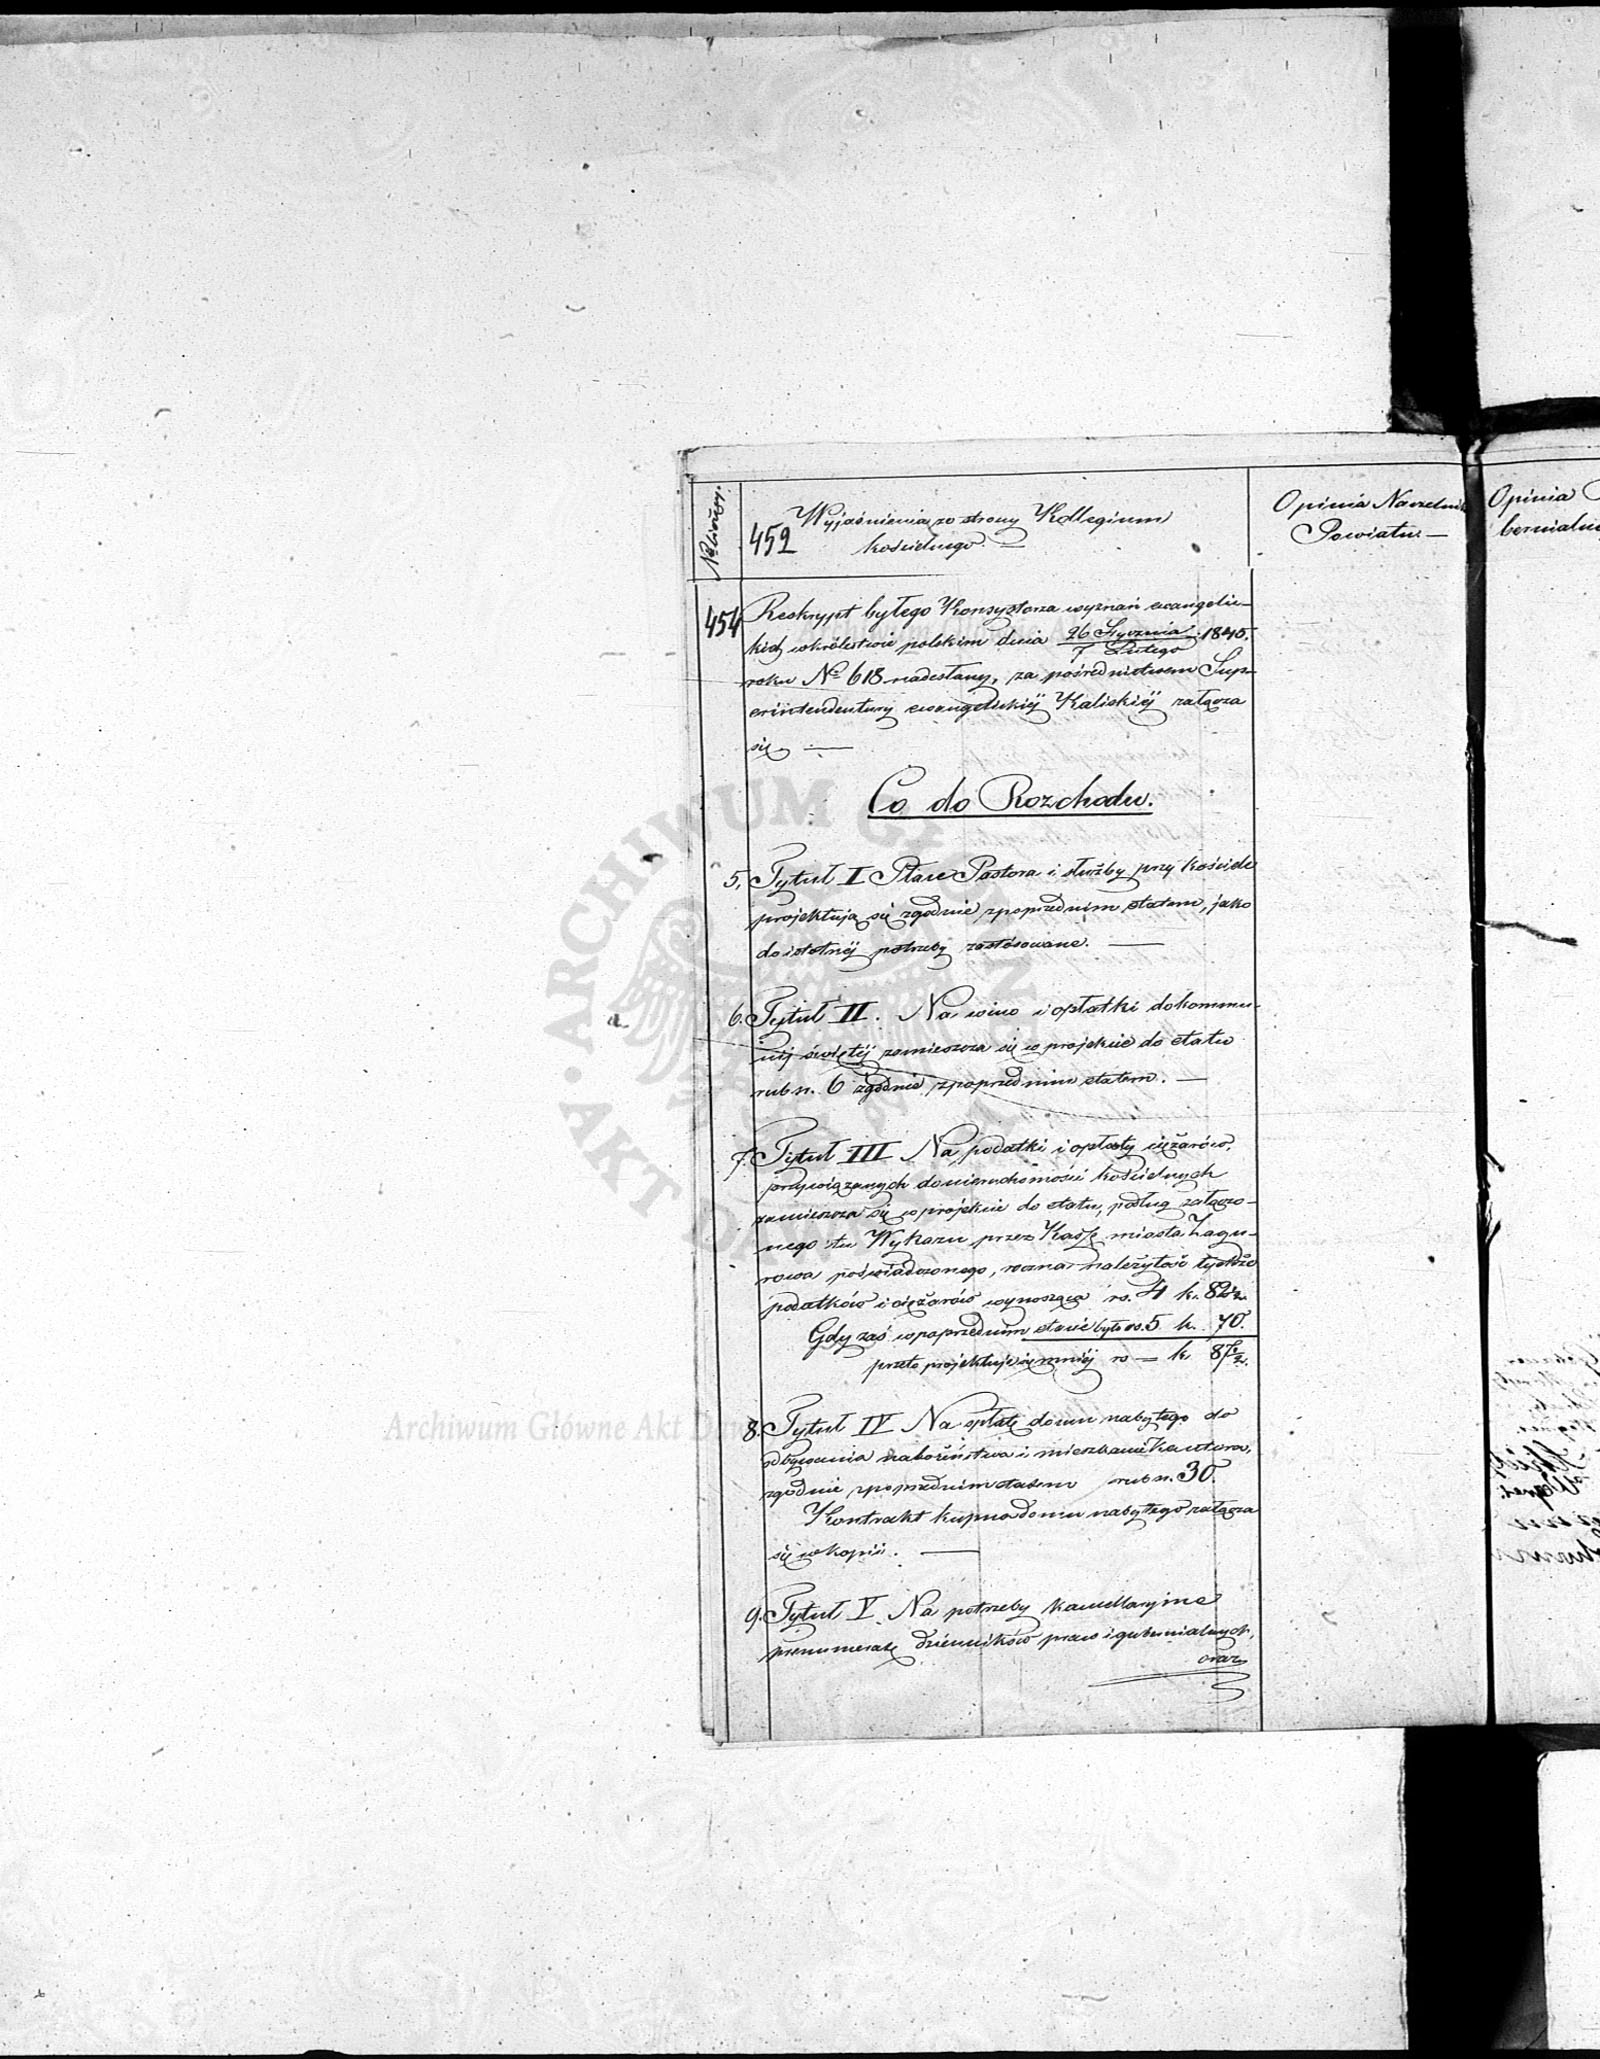 № bieżący.
452
Wyjaśnienia ze strony Kollegium
kościelnego. —
Opinia Naczelnika
Powiatu. —
Opinia
454
Reskrypt byłego Konsystorza wyznań ewangelic-
kich w królestwie polskim dnia 26 Stycznia / 7 Lutego 1845.
roku № 618 nadesłany, za pośrednictwem Sup-
erintendentury ewangelickiéj Kaliskiéj załącza
się. —
Co do Rozchodu.
5. Tytuł I Płace Pastora i służby przy kościele
projektują się zgodnie z poprzednim etatem, jako
do istotnéj potrzeby zastósowane. —
6. Tytuł II. Na wino i opłatki do kommu-
nij świętéj zamieszcza się w projekcie do etatu
rub sr. 6 zgodnie z poprzednim etatem. —
7. Tytuł III Na podatki i opłaty ciężarów,
przywiązanych do nieruchomości kościelnych
zamieszcza się w projekcie do etatu, podług załączo-
nego tu Wykazu przez Kassę miasta Zagu-
rowa poświadczonego, roczna należytość tychże
podatków i ciężarów wynosząca rs. 4 k. 82½.
Gdy zaś w poprzednim etacie było rs. 5 k. 70.
przeto projektuje się mniéj rs — k. 87½.
8. Tytuł IV Na opłatę domu nabytego do
odbywania nabożeństwa i mieszkanie Kantora,
zgodnie z poprzednim etatem rub sr. 30.
Kontrakt kupna domu nabytego załącza
się w kopii. —
9. Tytuł V. Na potrzeby kancellaryjne
prenumeratę dzienników praw i gubernialnych,
oraz
ARCHIWUM
AKT
Archiwum Główne Akt